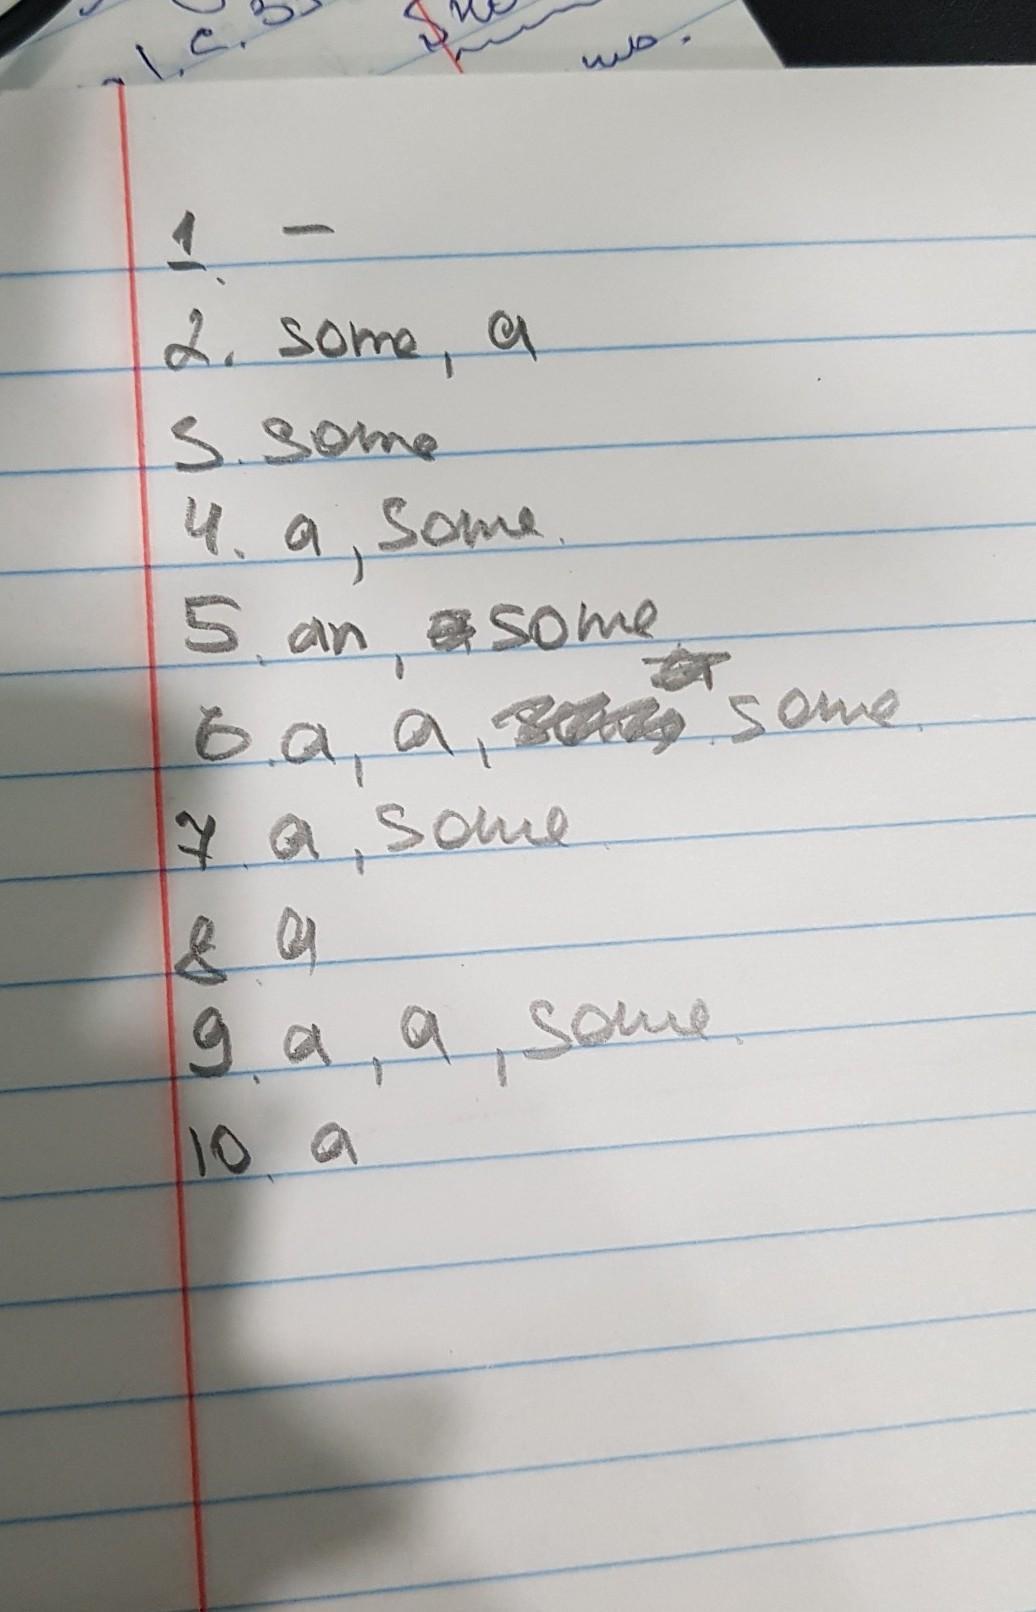 1. –
2. some, a
3. some
4. a, some.
5. an, some
6. a, a, some.
7. a, some.
8. a
9. a, a, some.
10. a